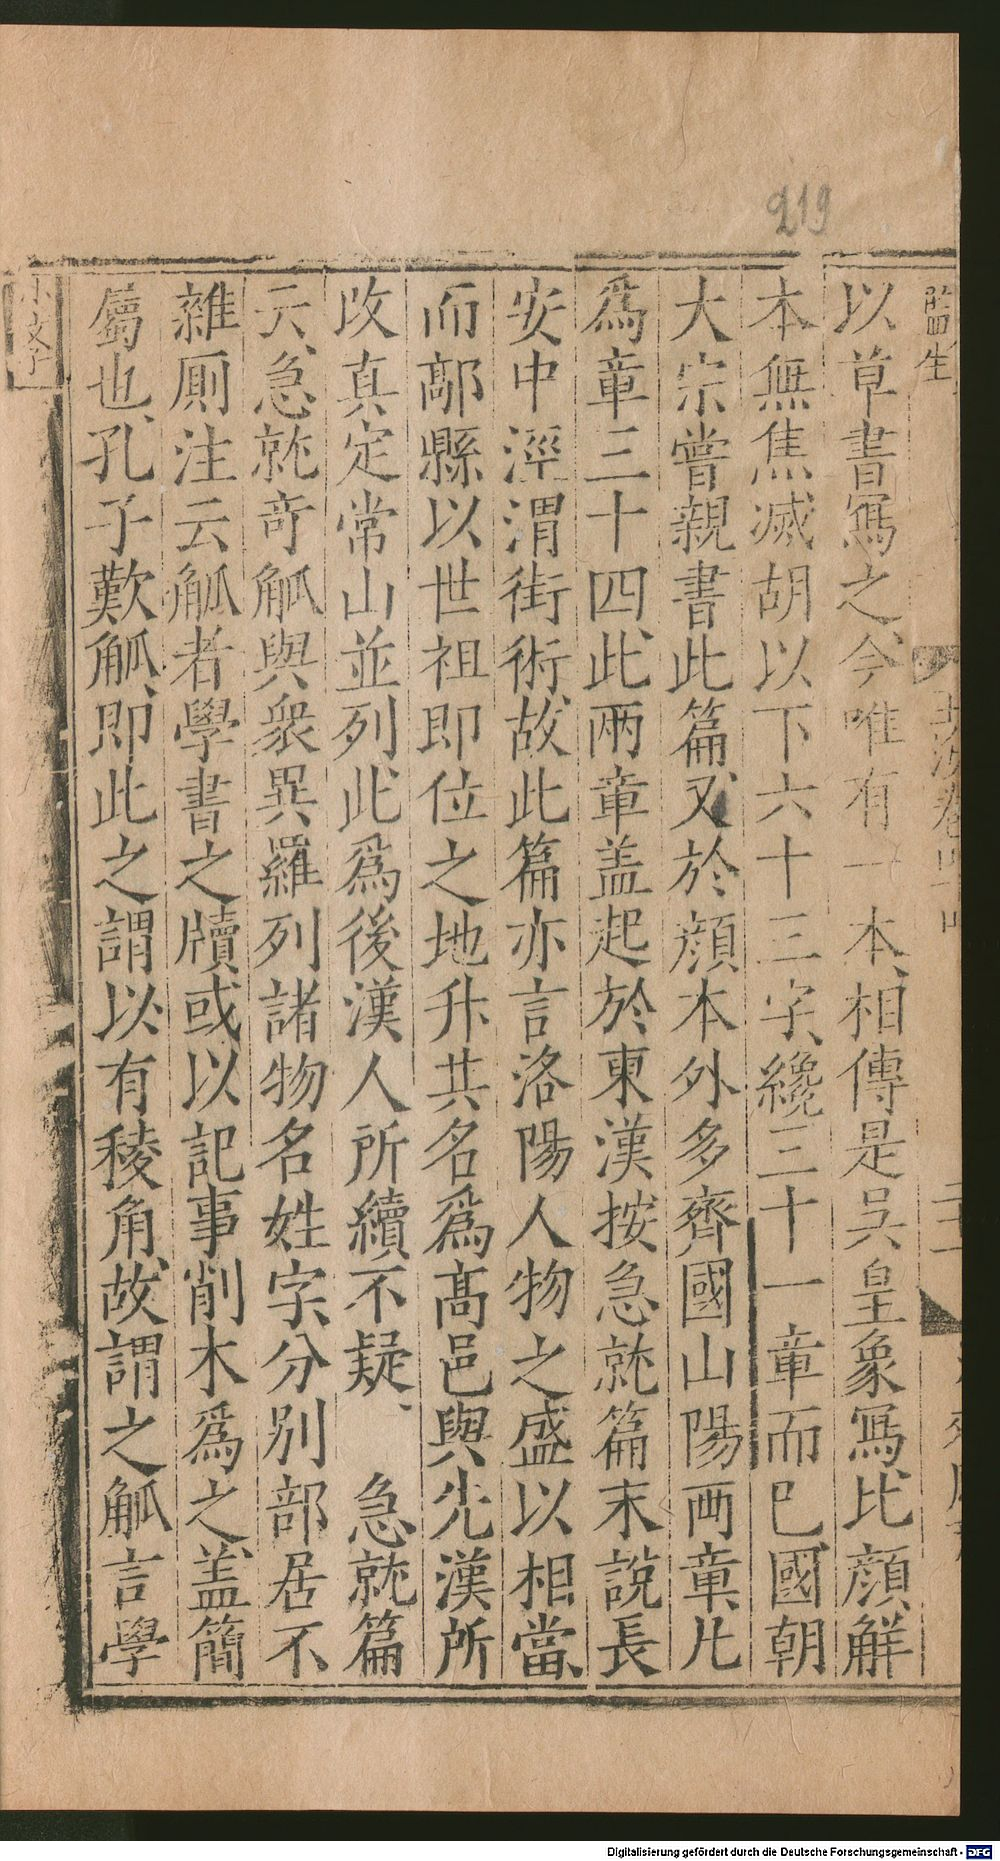 219
監生
以草書寫之今唯有一本相傳是吳皇象寫比顔解
本無焦滅胡以下六十三字纔三十一章而已國朝
大宗嘗親書此篇又於顔本外多齊國山陽両章凡
爲章三十四此兩章盖起於東漢按急就篇末說長
安中涇渭街術故此篇亦言洛陽人物之盛以相當
而鄗縣以世祖即位之地升共名爲高邑與先漢所
改真定常山並列此爲後漢人所續不疑 急就篇
云急就奇觚與衆異羅列諸物名姓字分別部居不
雜厠注云觚者學書之牘或以記事削木爲之盖簡
屬也孔子歎觚即此之謂以有稜角故謂之觚言學
Digitalisierung gefördert durch die Deutsche Forschungsgemeinschaft - DFG